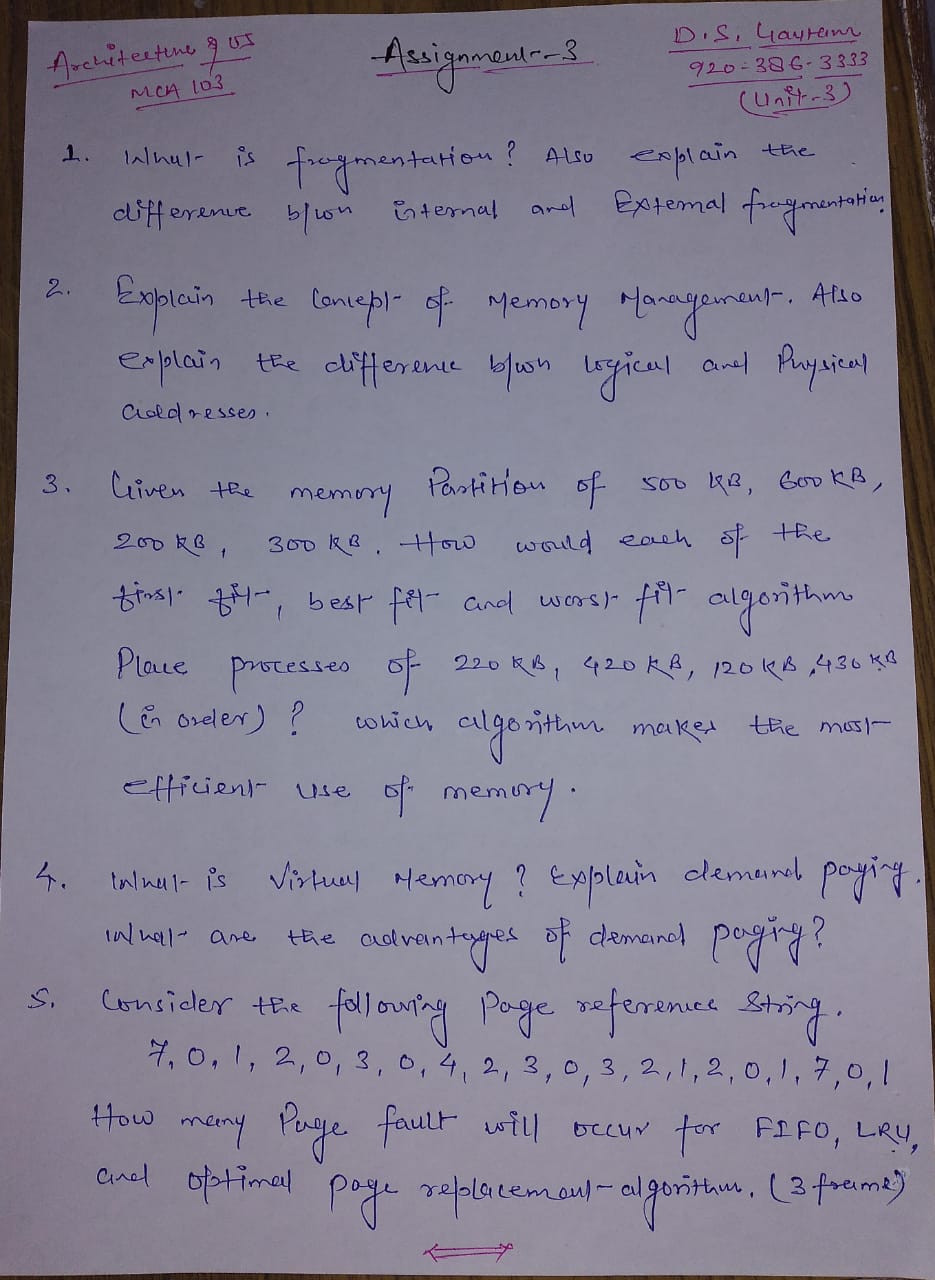 Architecture & OS
MCA 103
Assignment-3
D.S. Gautam
920-386-3333
(Unit-3)
1. What is fragmentation? Also explain the
difference b/wn internal and External fragmentation
2. Explain the Concept of Memory Management. Also
explain the difference b/wn logical and Physical
addresses.
3. Given the memory Partition of 500 KB, 600 KB,
200 KB, 300 KB. How would each of the
first fit, best fit and worst fit algorithm
Place processes of 220 KB, 420 KB, 120 KB, 430 KB
(in order)? which algorithm makes the most
efficient use of memory.
4. What is Virtual Memory? Explain demand paging.
What are the advantages of demand paging?
5. Consider the following Page reference String.
7, 0, 1, 2, 0, 3, 0, 4, 2, 3, 0, 3, 2, 1, 2, 0, 1, 7, 0, 1
How many Page fault will occur for FIFO, LRU,
and optimal page replacement algorithm. (3 frame)